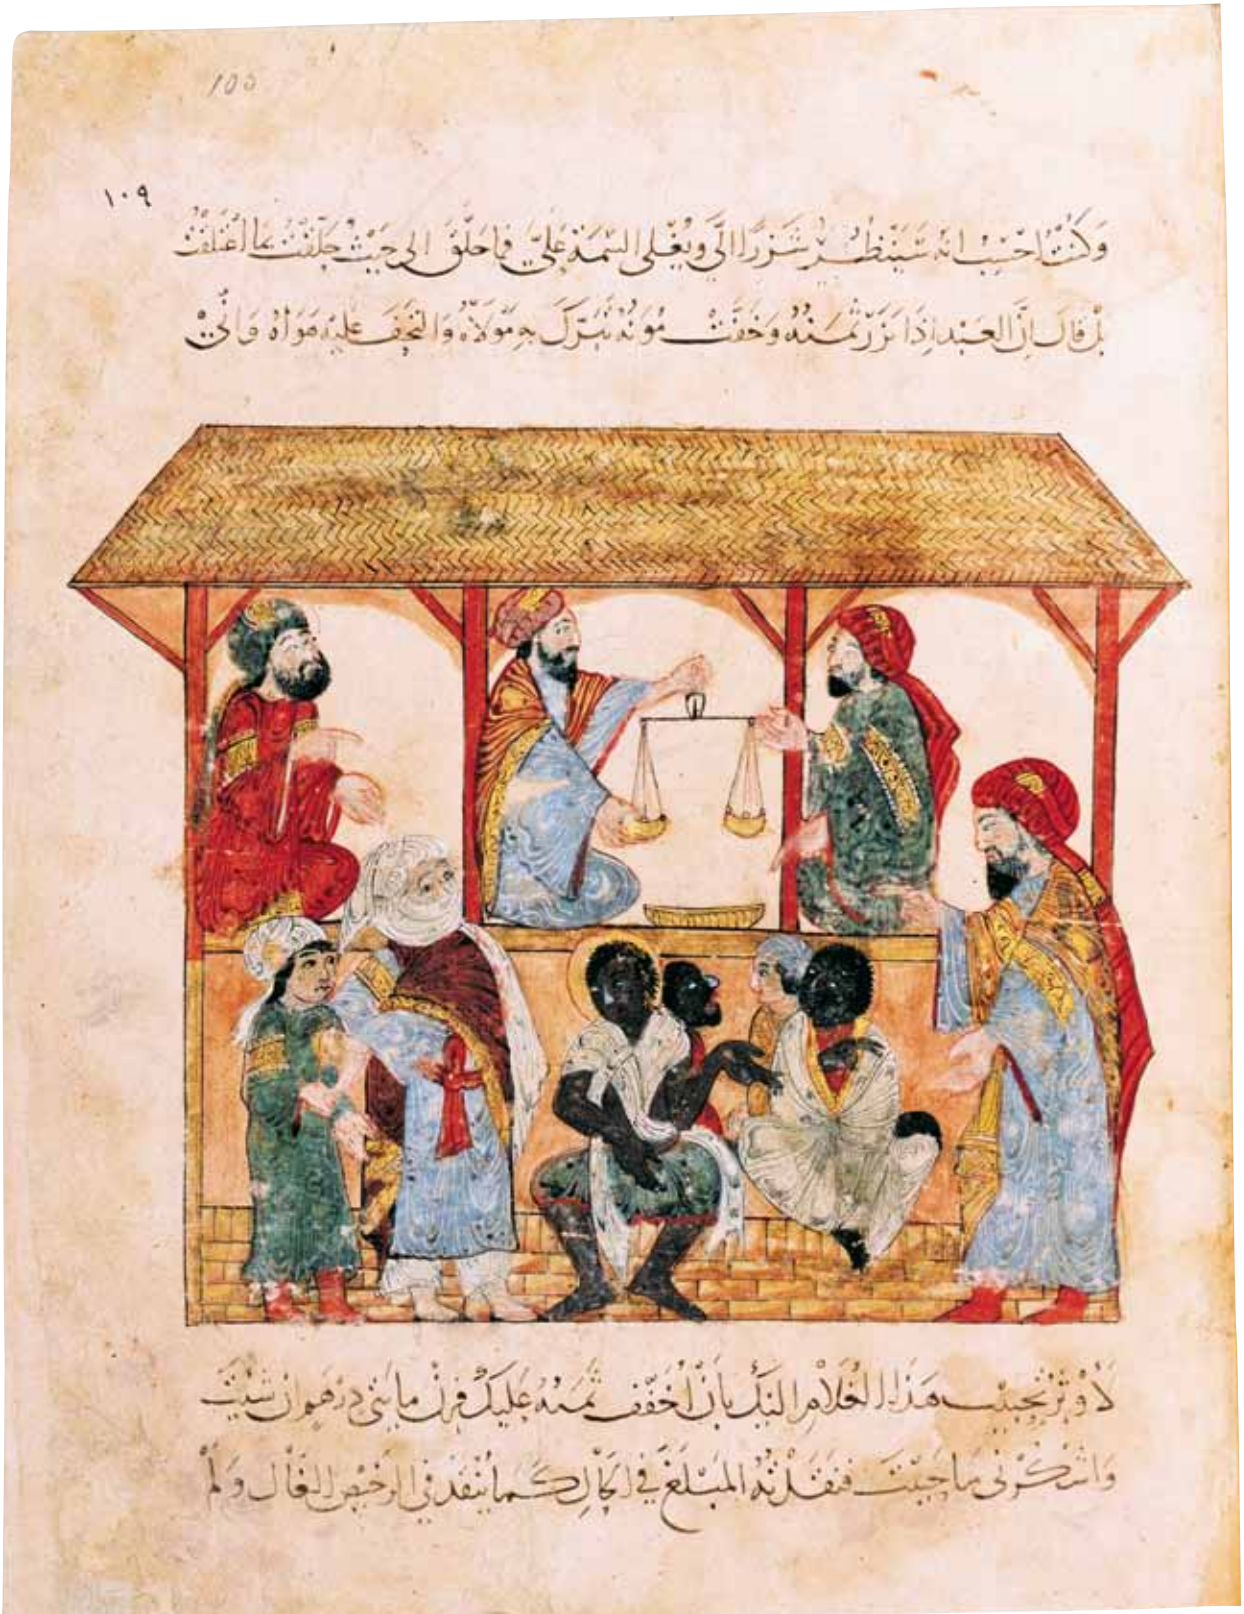 100
١٠٩
وَكُنْتُ احْسِبُ انه سَيَنْظُرُ شَزْرًا الَّي ويُغْلى السِّمَةَ عَلَيَّ فما حَلَّقَ الى حَيْثُ حَلَّقْتُ ولا اعْتَلَقَ
بل قال انَّ العَبْد اذَا نَزُرَ ثَمَنُهُ وَخَفَّتْ مُوَنُهُ تَبَرَّكَ بهِ مَوْلَاهُ وَالتحَفَ عليه هَوَاهُ وَانِّي
لَأُوثِرُ تحبيب هَذَا الغُلَامِ اليْكَ بأَنْ أُخَفِّف ثَمَنَهُ عَليكَ فزِنْ مايتي دِرْهم ان شئتَ
وَاشْكُرْ لي مَا حَيِيْتَ فنَقَدْتُهُ المَبْلَغَ في الحَالِ كَما يُنْقَدُ في الرَخيْصِ الحَلال وَلم